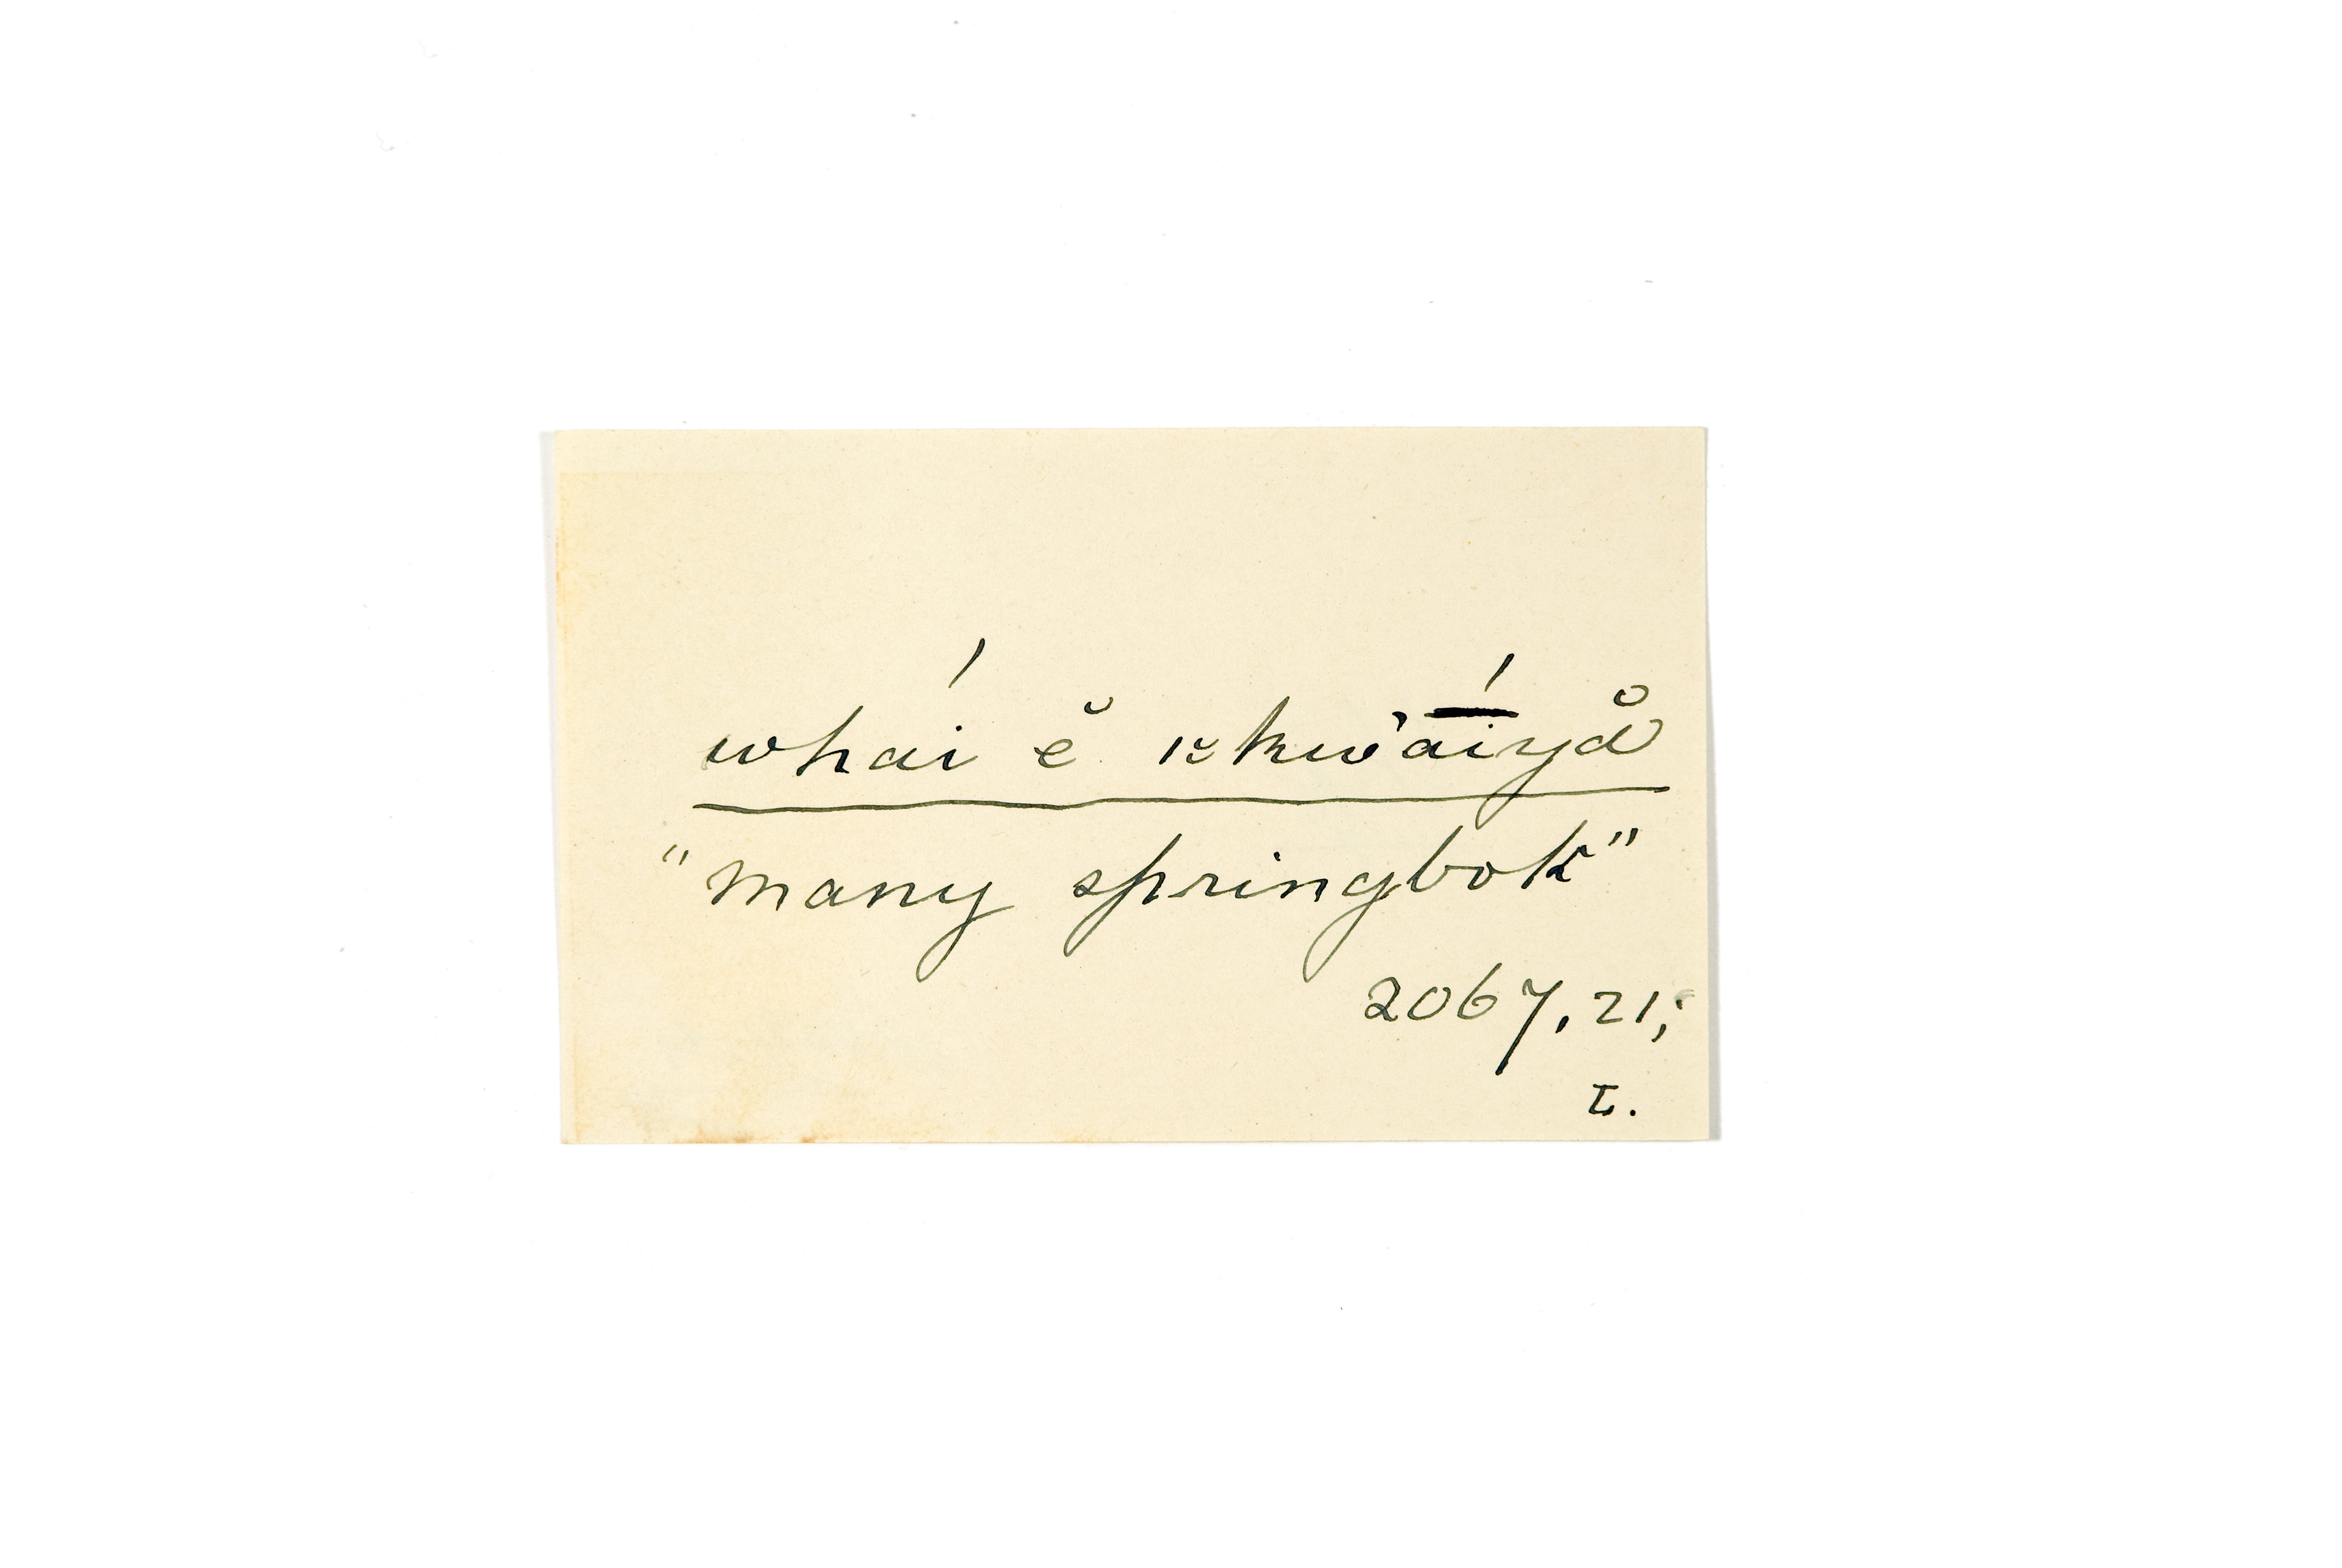 whaí ĕ ıĕ kwa̅íyå
"many springbok"
2067, 21,;
L.